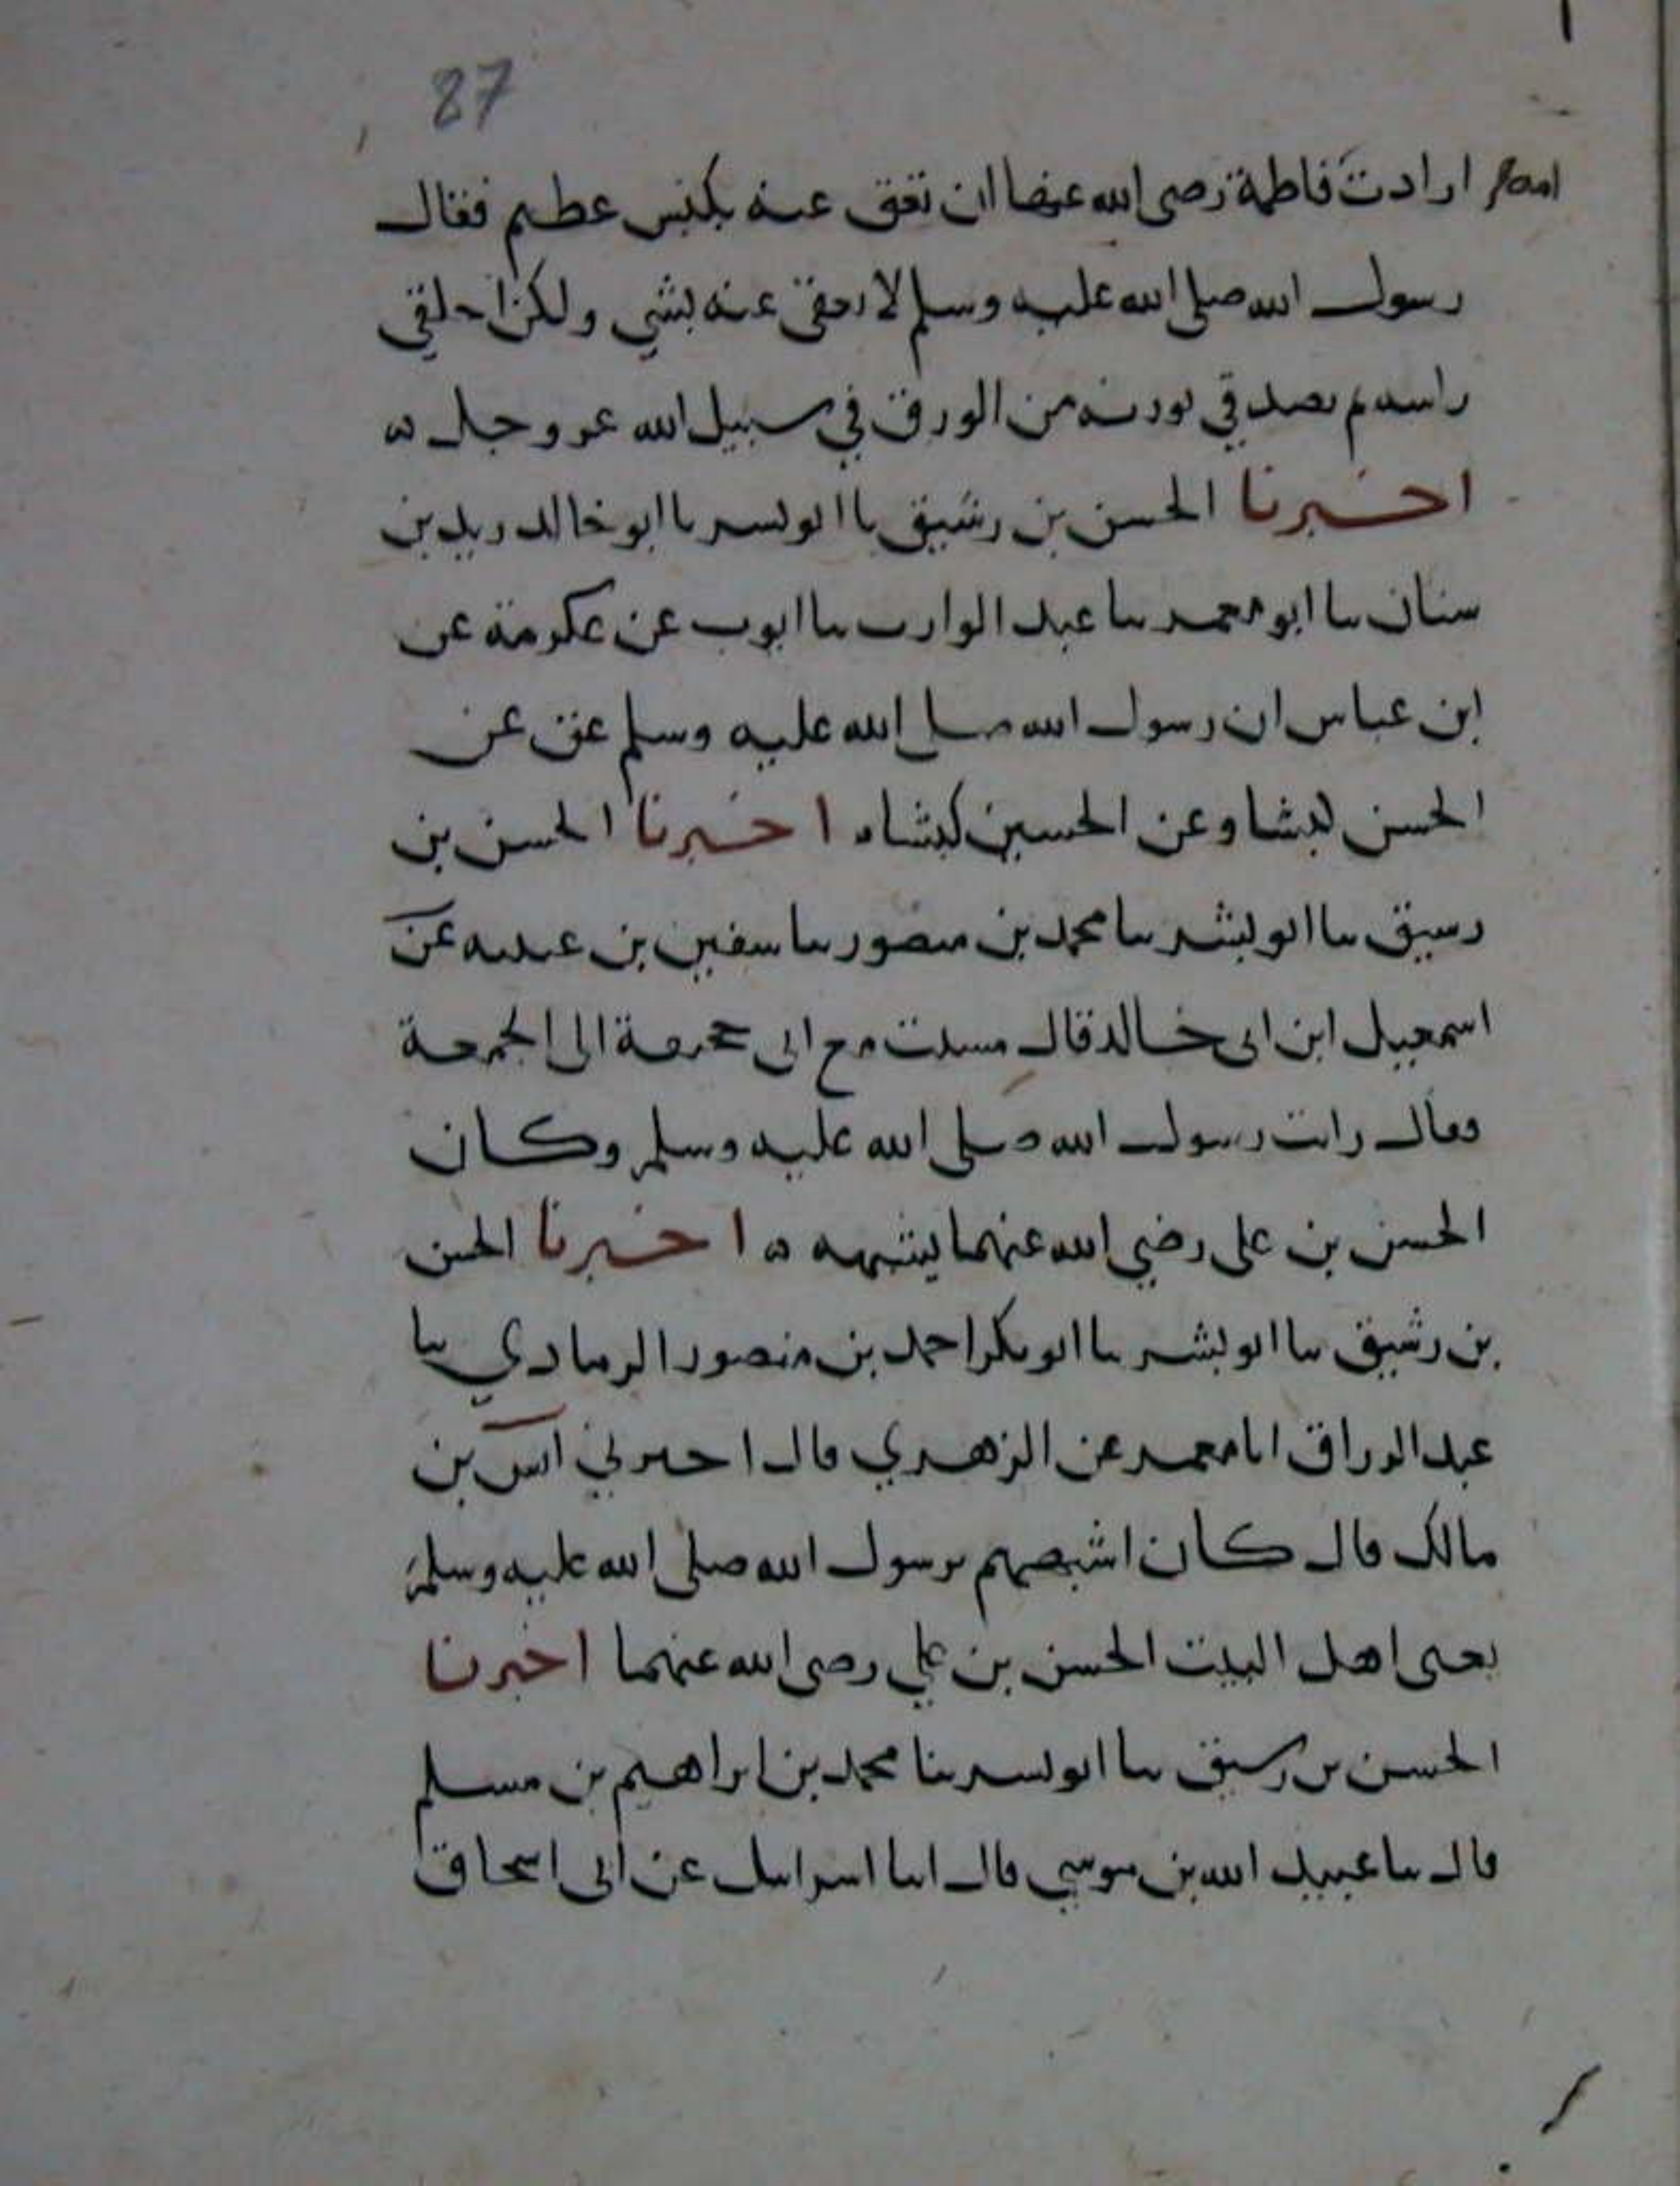 27
ارادت فاطمة رضى الله عنها ان تعق عنه بكبش عظيم فقال
رسول الله صلى الله عليه وسلم لا تعقى عنه بشي ولكن احلقي
راسه ثم تصدقي بوزنه من الورق في سبيل الله عز وجل ه
اخبرنا الحسن بن رشيق نا ابو بشر نا ابو خالد يزيد بن
سنان نا ابو معمر نا عبد الوارث نا ايوب عن عكرمة عن
ابن عباس ان رسول الله صلى الله عليه وسلم عق عن
الحسن كبشا وعن الحسين كبشا ه اخبرنا الحسن بن
رشيق نا ابو بشر نا محمد بن منصور نا سفين بن عيينه عن
اسمعيل ابن ابى خالد قال مشيت مع ابى جحيفة الى الجمعة
وقال رايت رسول الله صلى الله عليه وسلم وكان
الحسن بن على رضي الله عنهما يشبهه ه اخبرنا الحسن
بن رشيق نا ابو بشر نا ابو بكر احمد بن منصور الرمادي نا
عبد الرزاق انا معمر عن الزهري قال اخبرني انس بن
مالك قال كان اشبههم برسول الله صلى الله عليه وسلم
يعنى اهل البيت الحسن بن علي رضى الله عنهما اخبرنا
الحسن بن رشيق نا ابو بشر نا محمد بن ابراهيم بن مسلم
قال نا عبيد الله بن موسي قال انا اسرايل عن ابى اسحاق